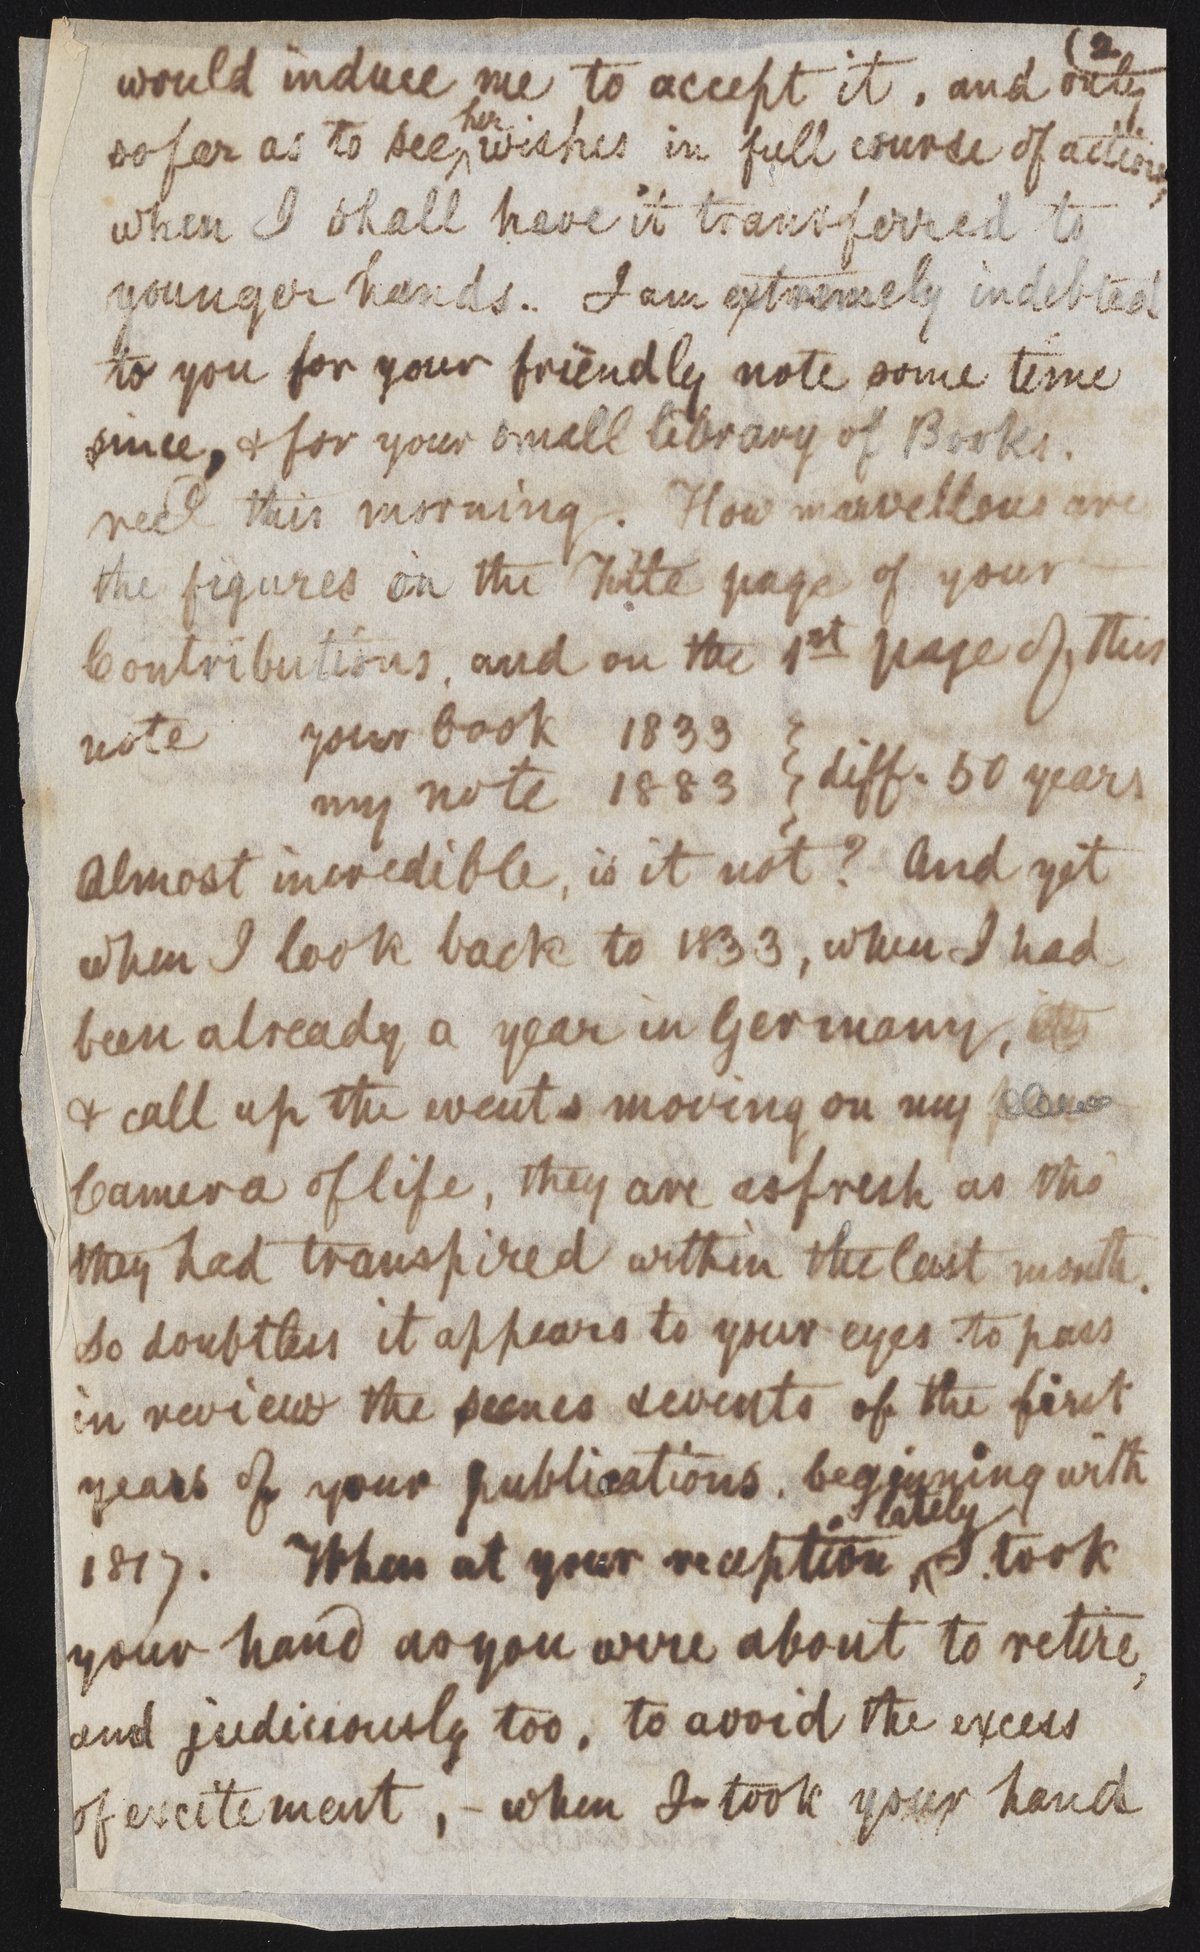 (2
would induce me to accept it, and only
so far as to see her wishes in full course of action,
when I shall have it transferred to
younger hands.. I am extremely indebted
to you for your friendly note some time
since, & for your small library of Books.
recd this morning. How marvellous are
the figures on the Title page of your
Contributions, and on the 1st page of this
note your book 1833
my note 1883 } diff. 50 years
Almost incredible, is it not? And yet
when I look back to 1833, when I had
been already a year in Germany,
& call up the events moving on my
Camera of life, they are as fresh as tho
they had transpired within the last month.
So doubtless it appears to your eyes to pass
in review the scenes & events of the first
years of your publications, beginning with
1817. When at your reception lately I took
your hand as you were about to retire,
and judiciously too, to avoid the excess
of excitement, – when I took your hand